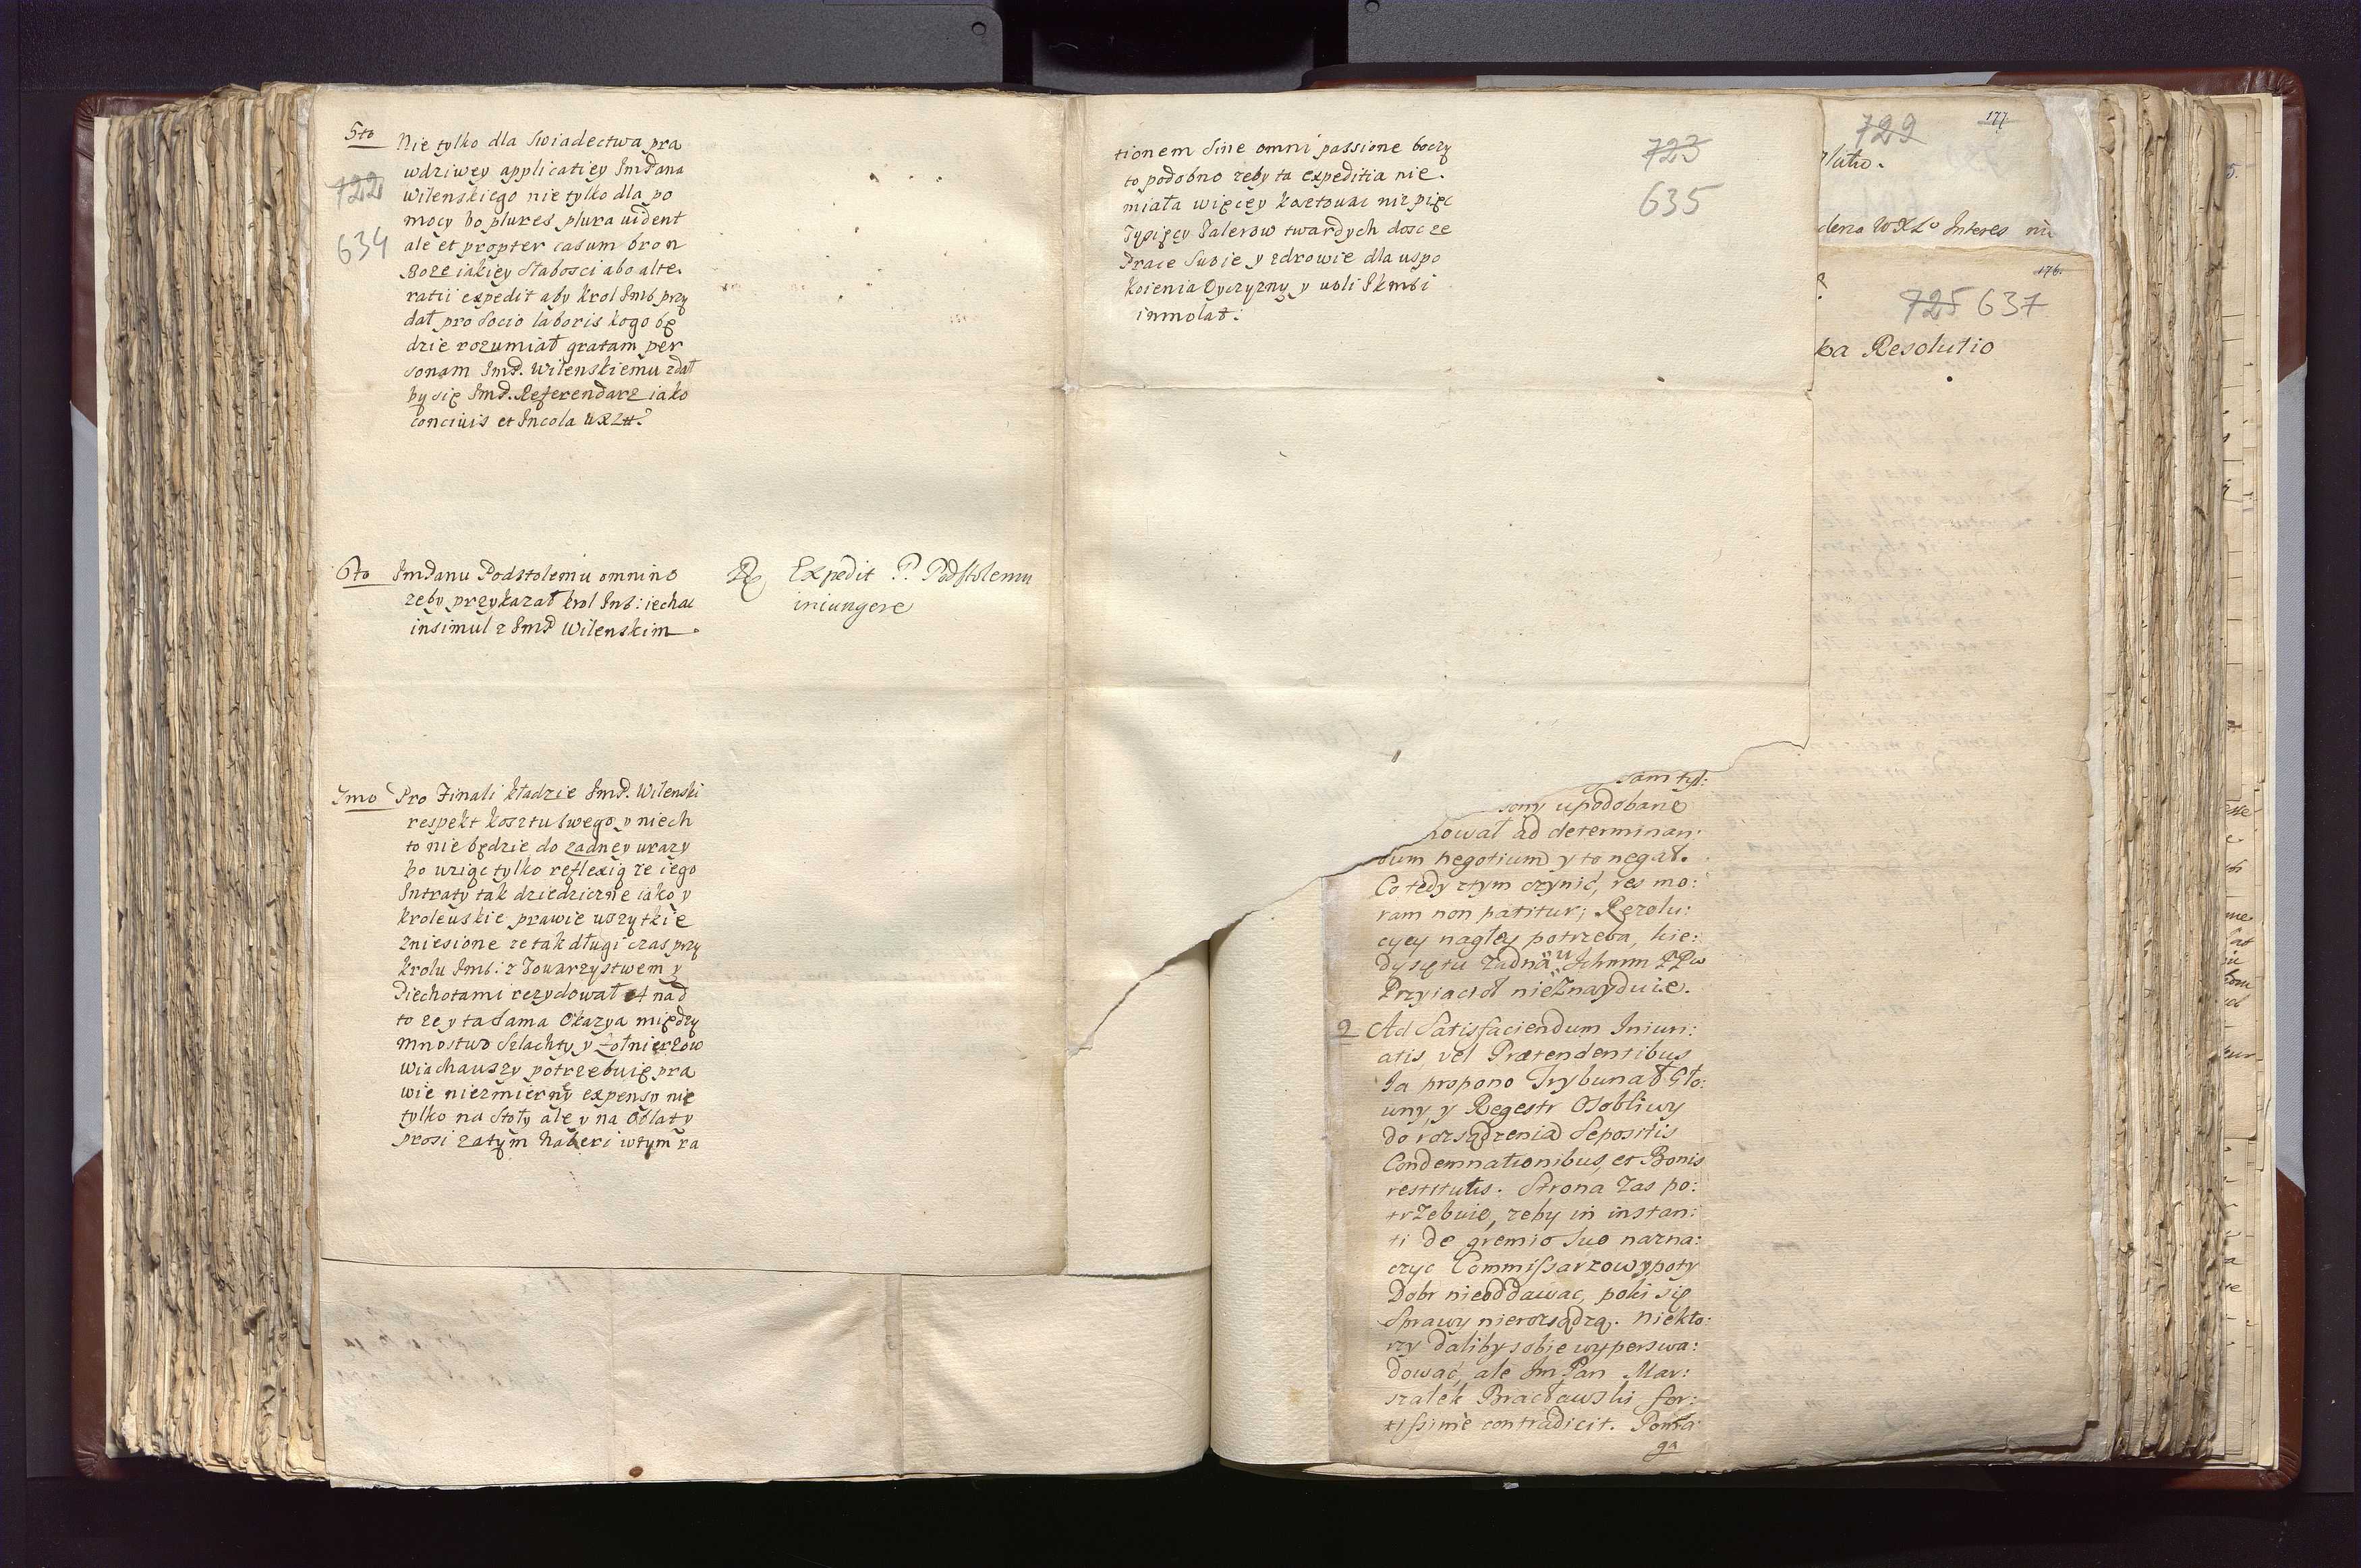 5to
Nie tylko dla Swiadectwa pra
wdziwey applicatiey ImPana
Wilenskiego nie tylko dla po
mocy bo plures plura vident
ale et propter casum bron
Boze iakiey Słabosci abo alte
ratii expedit aby Krol Imb przy
dał pro Socio laboris kogo bę
dzie rozumiał gratam per
sonam ImP. Wilenskiemu zdał
by się ImP. Referendarz iako
concivis et Incola
722
634
6to
ImPanu Podstolemu omnino
zeby przykazał krol Imb: iechac
insimul z ImP Wilenskim
Expedit P. Podstolemu
iniungere
7mo
Pro Finali kładzie ImP. Wilenski
respekt kosztu swego y niech
to nie będzie do zadney urazy
bo wziąc tylko reflexią ze iego
Intraty tak dziedziczne iako y
krolewskie prawie wszytkie
zniesione ze tak długi czas przy
krolu Imb: z Towarzystwem y
Piechotami rezydował et nad
to ze y ta Sama Okazya między
mnostwo Szlachty y Zołnierzow
wiachawszy potrzebuię pra
wie niezmierny expensy nie
tylko na Stoły ale y na Oblaty
prosi zatym haberi w tym ra
tionem Sine omni passione boczy
to podobno zeby ta expeditia nie
miała więcey kosztowac niz pięc
Tysięcy Talerow twardych dosc ze
Prace Swoie y zdrowie dla uspo
koienia Oyczyzny y woli
inmolat:
723
635
729
177
Interes
176.
725 637
Resolutio
sam tyl:
sony upodobane
nował ad determinan:
dum negotium y to negat.
Co tedy z tym czynić, res mo:
ram non patitur; Rezolu:
cyey nagłey potrzeba, kie:
dy się tu zadna
Przyiacioł nie Znayduie.
2 Ad Satisfaciendum Iniuri:
atis, vel Prætendentibus
Ia propono Trybunał Gło:
wny, y Regestr Osobliwy
do rozsądzenia Sepositis
Condemnationibus, et Bonis
restitutis. Strona Zas po:
trZebuie, zeby in instan:
ti de gremio Suo nazna:
czyc Commissarzow y poty
Dobr nieoddawac, poki się
Sprawy nierozsądzą. Niekto:
rzy daliby sobie wyperswa:
dować, ale Im Pan Mar:
szałek Bracławski for:
tissime contradicit. Poma
ga